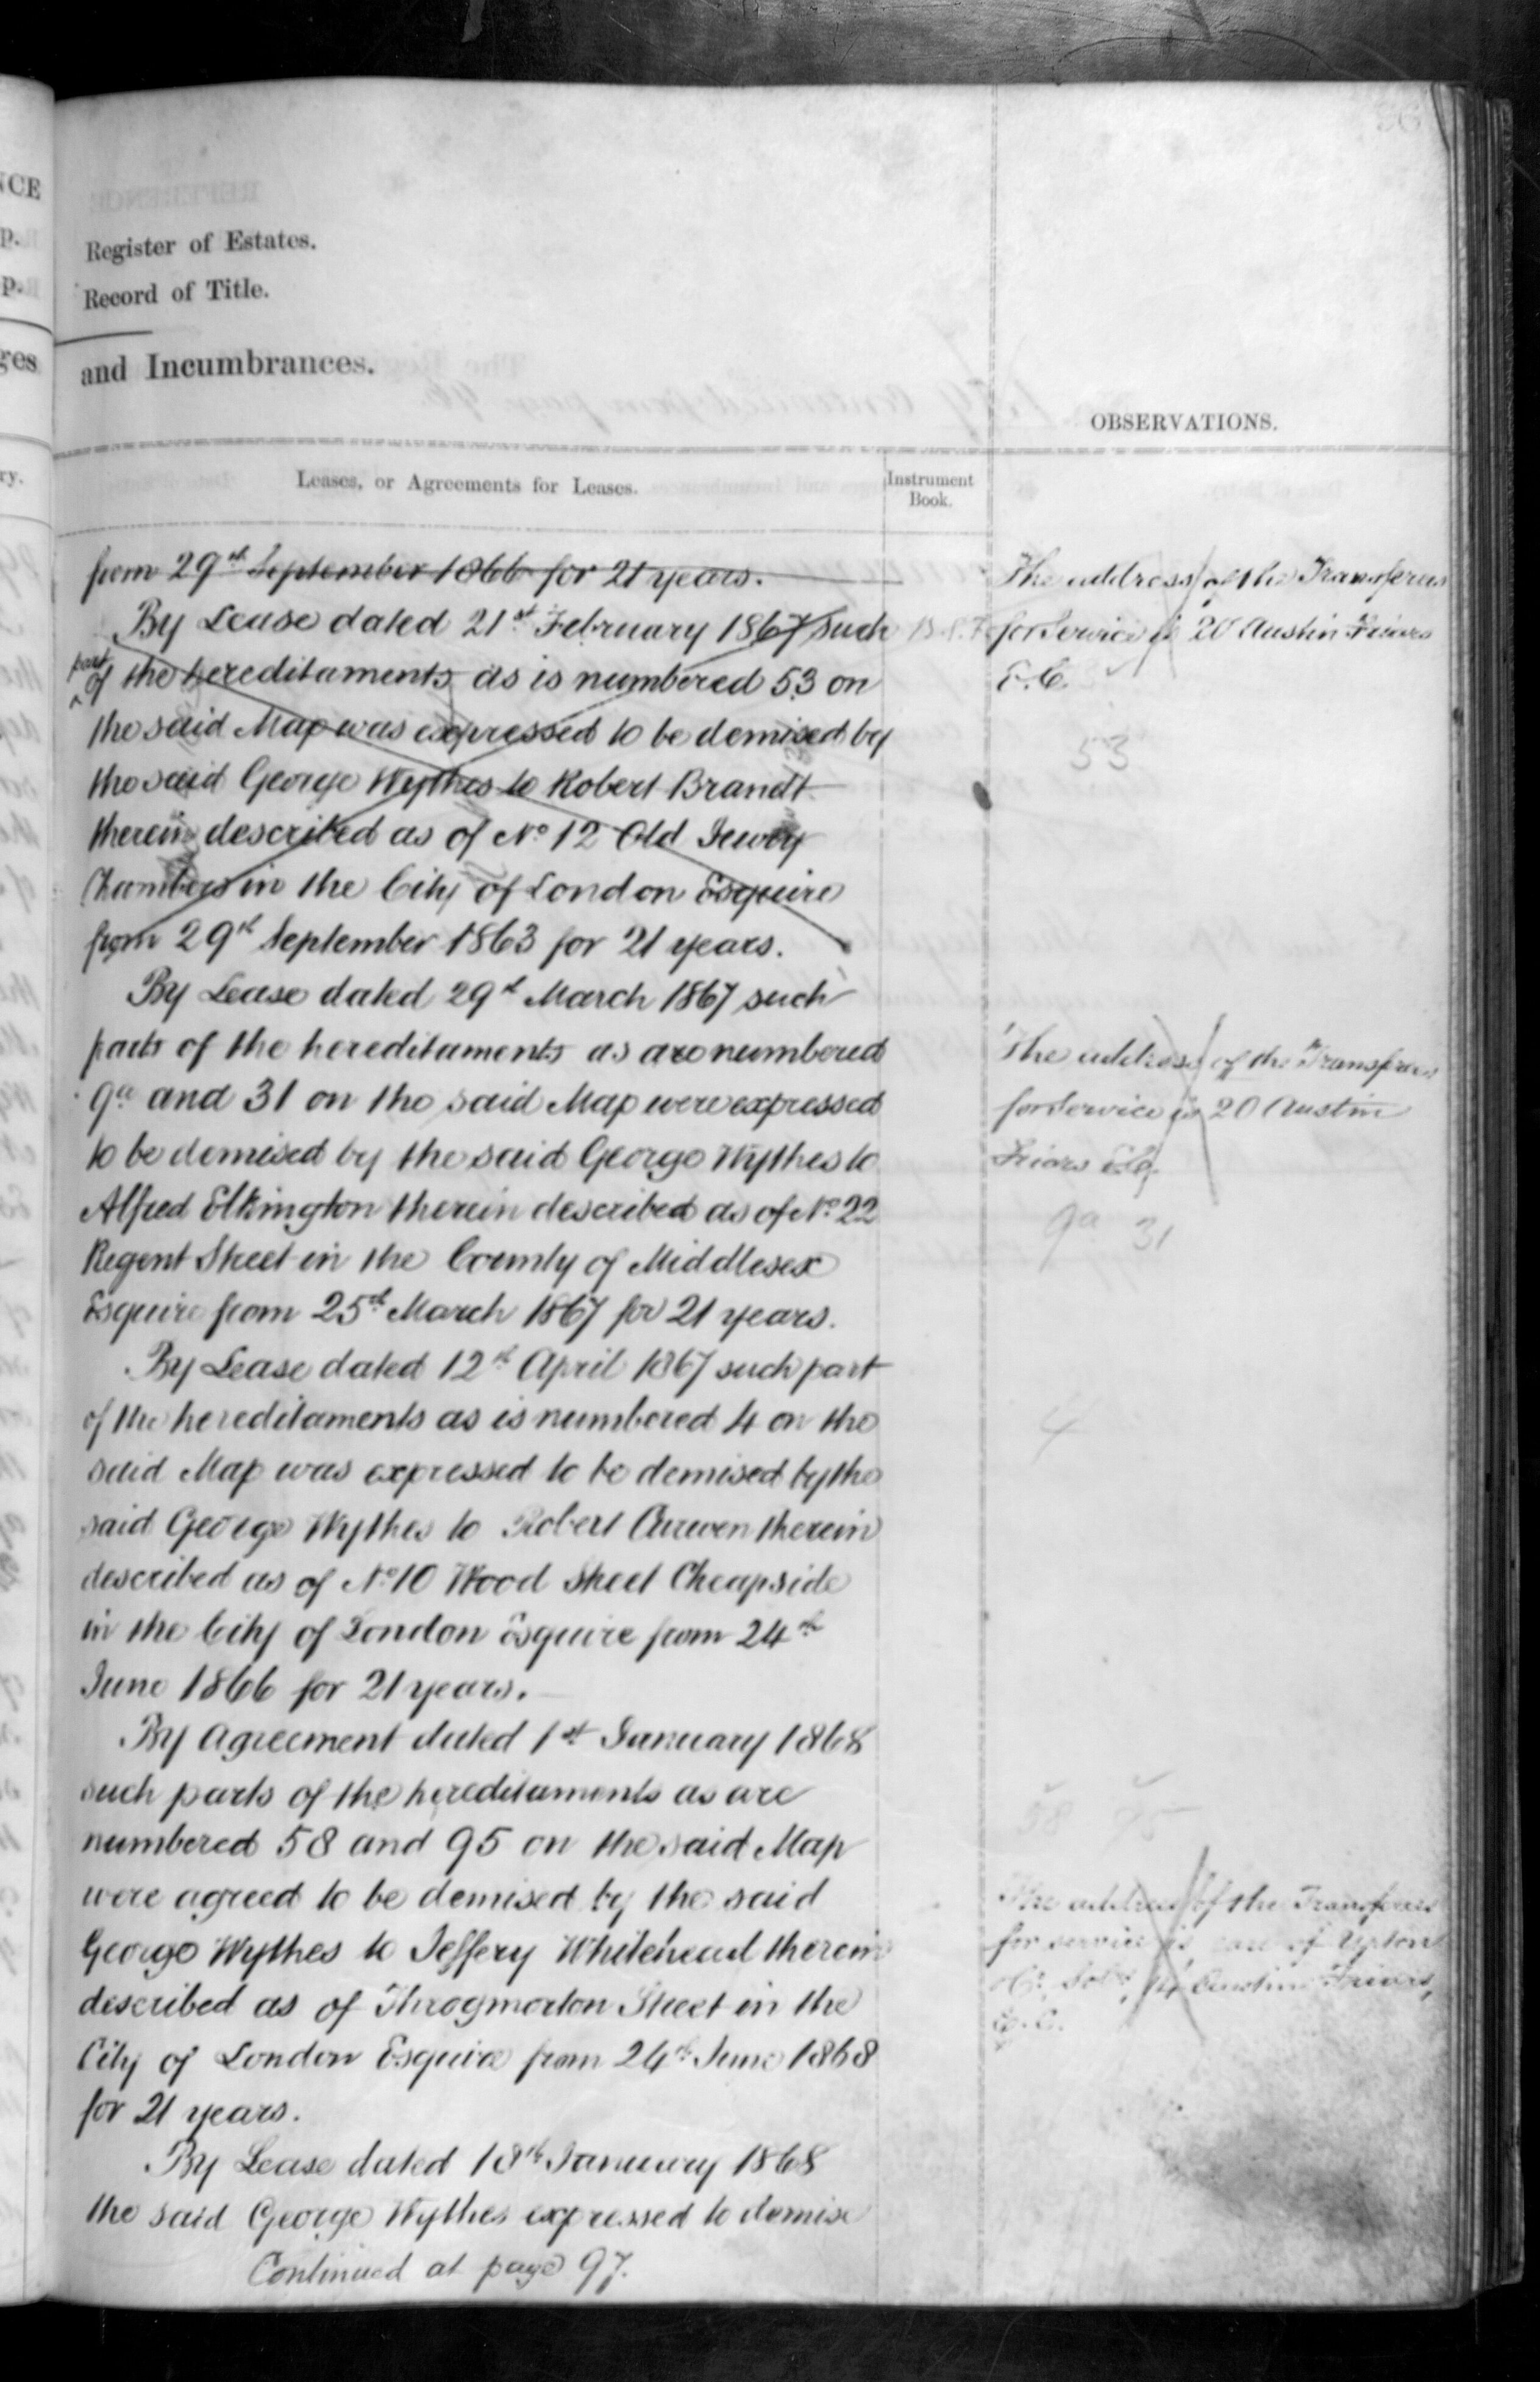 Register of Estates.
Record of Title.
and Incumbrances.
OBSERVATIONS.
Leases, or Agreements for Leases.
Instrument
Book.
from 29th September 1866 for 21 years.
By Lease dated 21st February 1867 such
part
of the hereditaments as is numbered 53 on
the said Map was expressed to be demised by
the said George Wythes to Robert Brandt
therein described as of No 12 Old Jewry
Chambers in the City of London Esquire
from 29th September 1863 for 21 years.
By Lease dated 29th March 1867 such
parts of the hereditaments as are numbered
9a and 31 on the said Map were expressed
to be demised by the said George Wythes to
Alfred Elkington therein described as of No 22
Regent Street in the County of Middlesex
Esquire from 25th March 1867 for 21 years.
By Lease dated 12th April 1867 such part
of the hereditaments as is numbered 4 on the
said Map was expressed to be demised by the
said George Wythes to Robert Curwen therein
described as of No 10 Wood Street Cheapside
in the City of London Esquire from 24th
June 1866 for 21 years.
By Agreement dated 1st January 1868
such parts of the hereditaments as are
numbered 58 and 95 on the said Map
were agreed to be demised by the said
George Wythes to Jeffery Whitehead therein
described as of Throgmorton Street in the
City of London Esquire from 24th June 1868
for 21 years.
By Lease dated 18th January 1868
the said George Wythes expressed to demise
Continued at page 97.
The address of the Transferees
for Service is 20 Austin Friars
E.C.
53
The address of the Transferees
for Service is 20 Austin
Friars E.C.
9a 31
4
58 95
The address of the Transferees
for service is care of Upton
&c. Solrs, 14 Austin Friars,
E.C.